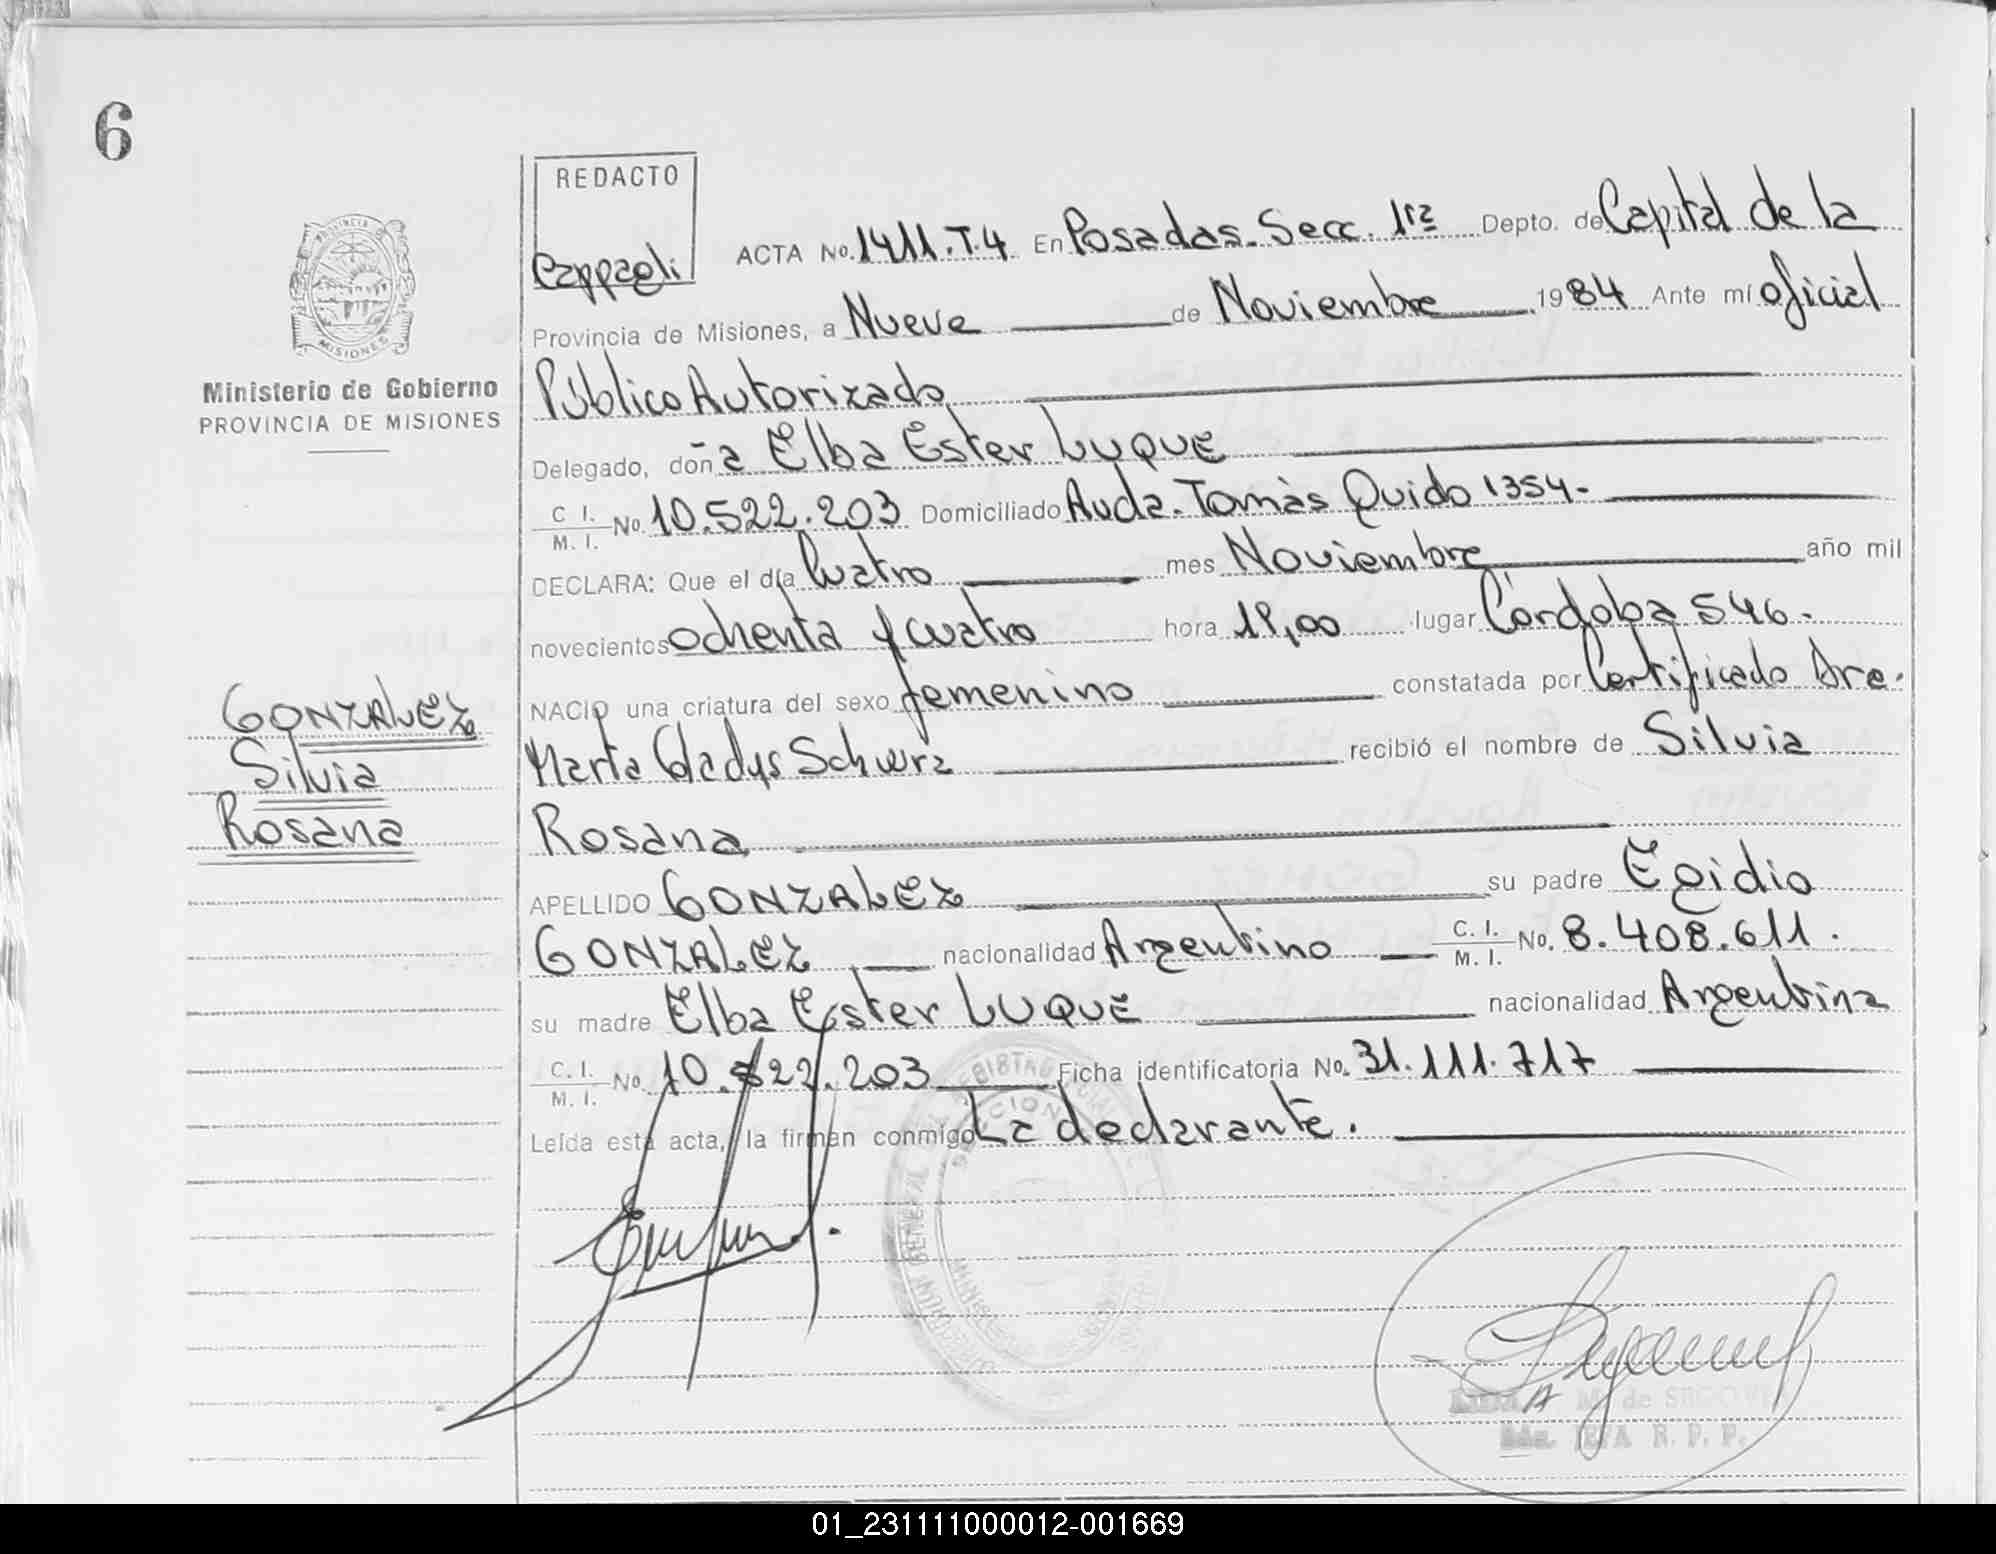 6
REDACTO
Cappagli
ACTA No. 1411.T.4 En Posadas. Secc. 1ra Depto. de Capital de la
Provincia de Misiones, a Nueve de Noviembre 1984 Ante mí oficial
Público Autorizado
Delegado, doña Elba Ester LUQUE
C I. M. I. No. 10.522.203 Domiciliado Avda. Tomàs Quido 1354.
DECLARA: Que el día Cuatro mes Noviembre año mil
novecientos ochenta y cuatro hora 19,00 lugar Córdoba 546.
NACIO una criatura del sexo femenino constatada por Certificado Dra.
Marta Gladys Schwrz recibió el nombre de Silvia
Rosana
APELLIDO GONZALEZ su padre Egidio
GONZALEZ nacionalidad Argentino C. I. M. I. No. 8.408.611.
su madre Elba Ester LUQUE nacionalidad Argentina
C. I. M. I. No. 10.522.203 Ficha identificatoria No. 31.111.717
Leída esta acta, la firman conmigo La declarante.
MISIONES
Ministerio de Gobierno
PROVINCIA DE MISIONES
GONZALEZ
Silvia
Rosana
M. de SEGOVIA
JEFA R. P. P.
01_231111000012-001669